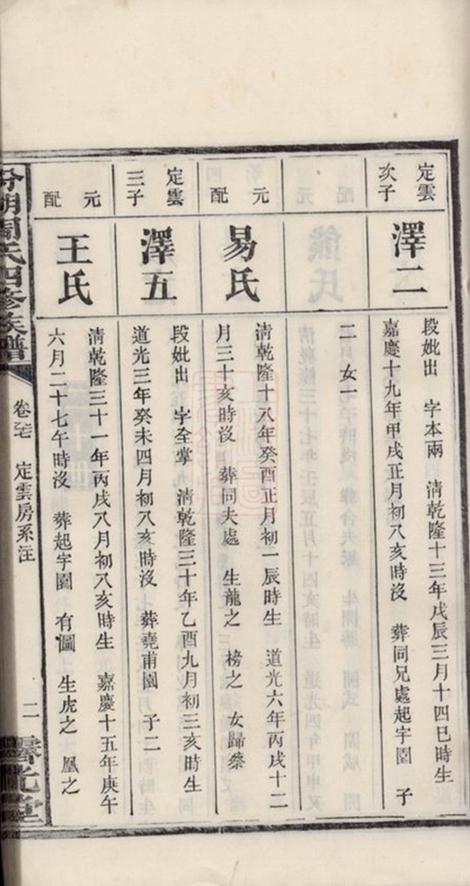 定雲次子
澤二
段妣出 字本兩 清乾隆十三年戊辰三月十四巳時生
嘉慶十九年甲戌正月初八亥時沒 葬同兄處起字圍 子
二 女一
元配
易氏
清乾隆十八年癸酉正月初一辰時生 道光六年丙戌十二
月三十亥時沒 葬同夫處 生龍之 榜之 女歸蔡
定雲三子
澤五
段妣出 字全掌 清乾隆三十年乙酉九月初三亥時生
道光三年癸未四月初八亥時沒 葬堯甫園 子二
元配
王氏
清乾隆三十一年丙戌八月初八亥時生 嘉慶十五年庚午
六月二十七午時沒 葬起字園 有圖 生虎之 鳳之
周氏四修族譜
定雲房系注
二